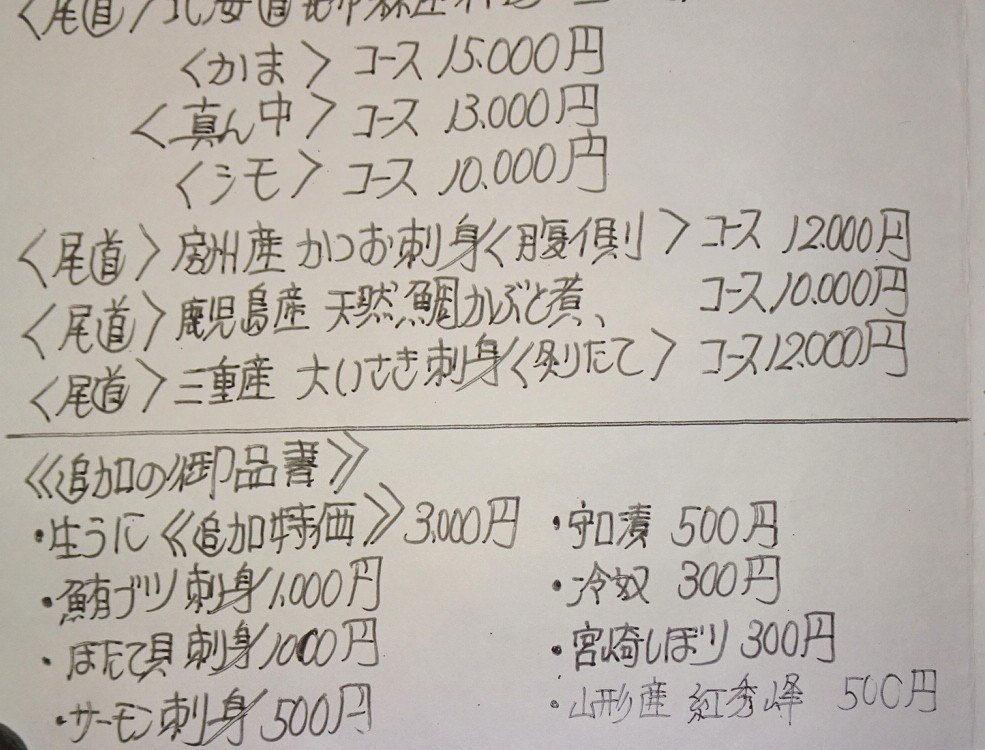 〈尾道〉北安
〈かま〉コース 15.000円
〈真ん中〉コース 13.000円
〈シモ〉コース 10.000円
〈尾道〉房州産 かつお刺身〈腹側〉コース 12.000円
〈尾道〉鹿児島産 天然鯛かぶと煮、 コース 10.000円
〈尾道〉三重産 大いさき刺身〈剥りたて〉コース 12.000円
《追加の御品書》
・生うに《追加特価》3,000円
・鮪ブツ刺身 1,000円
・ほたて貝刺身 1000円
・サーモン刺身 500円
・守口漬 500円
・冷奴 300円
・宮崎しぼり 300円
・山形産 紅秀峰 500円